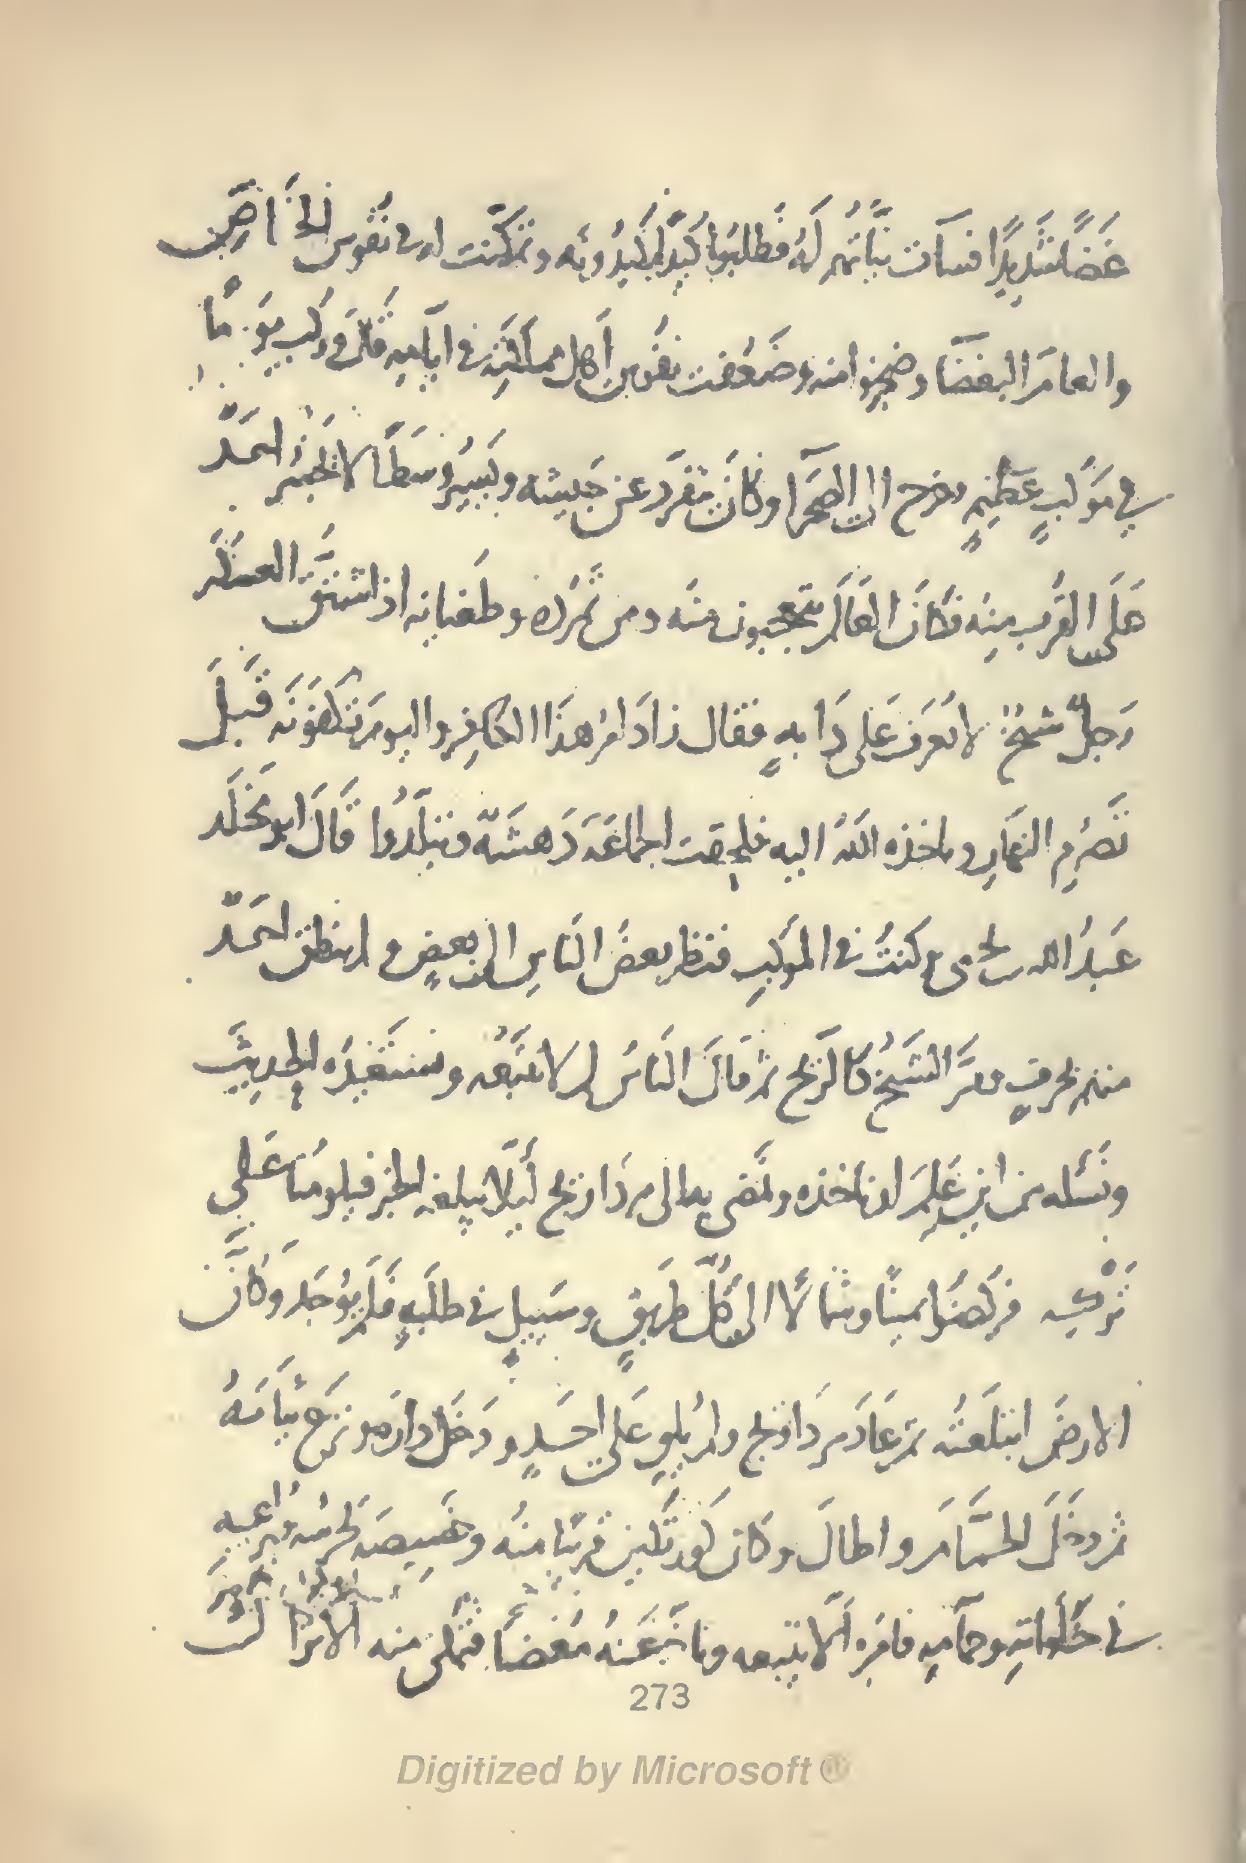 غضبًا شديدًا فساءت نيّاتهم له فطلبوا كيدًا يكيدونه وتمكنت له في نفوس الخاصّ
والعام البغضا وضجروا منه وضعفت نفوس أهل مملكته في ايامه فلمّا ركب يومًا
في موكبٍ عظيمٍ وخرج الى الصحرا وكان ينفرد عن جيشه ويسير وسطًا لا يجسر احدٌ
على القرب منه فكان العالم يتعجبون منه ومن تمرّده وطغيانه اذ اشتق العسكر
رجلٌ شيخٌ لا يعرف على دابه فقال زاد امر هذا الكافر واليوم تكفونه قبل
تصرم النهار وياخذه الله اليه فلحقت الجماعة دهشة وتبلّدوا قال ابو مخلد
عبد الله بن يحيى وكنتُ في الموكب فنظر بعض الناس الى بعض ولم ينطق احدٌ
منهم بحرفٍ ومرّ الشيخ كالريح ثم قال الناس لم لا نتبعه ونستعيده الحديث
ونسئله من اين علم او ناخذه ونمضي به الى مرداويج ليلا يبلغه الخبر فيلومنا على
تركه فركضوا يمينًا وشمالًا الى كل طريقٍ وسبيلٍ في طلبه فلم يوجد وكان
الارض ابتلعته ثم عاد مرداويج ولم يلوِ على احدٍ ودخل داره ونزع ثيابه
ثم دخل الحمّام واطال وكان كورتكين قريبًا منه وخصيصه يحرسه ويراعيه
في خلواته وحمامه فامره ألّا يتبعه وتاخّر عنه مغضبًا فتمكن منه الاتراك
273
Digitized by Microsoft ®